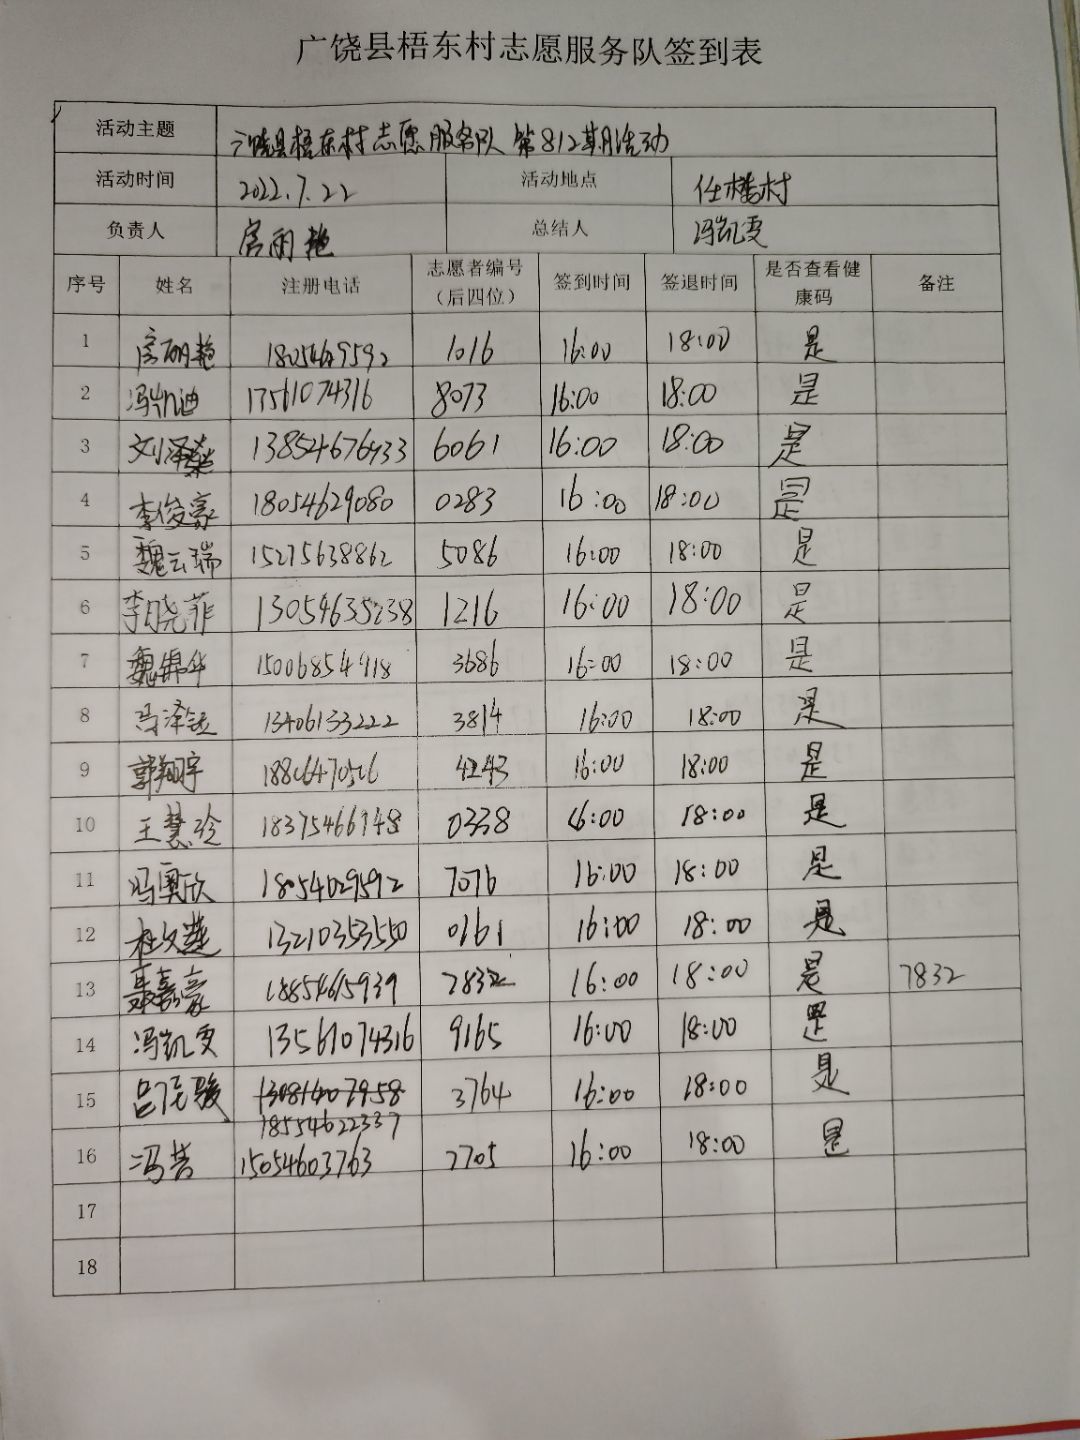 广饶县梧东村志愿服务队签到表
活动主题 广饶县梧东村志愿服务队 第812期活动
活动时间 2022.7.22 活动地点 任楼村
负责人 房雨艳 总结人 冯凯雯
序号 姓名 注册电话 志愿者编号（后四位） 签到时间 签退时间 是否查看健康码 备注
1 房雨艳 1016 16:00 18:00 是
2 冯凯迪 17561074316 8073 16:00 18:00 是
3 刘泽燊 6061 16:00 18:00 是
4 李俊豪 18054629080 0283 16:00 18:00 是
5 魏云瑞 15275638862 5086 16:00 18:00 是
6 李晓菲 13054635238 1216 16:00 18:00 是
7 魏锦华 15006854918 3686 16:00 18:00 是
8 冯泽钰 13406133222 3814 16:00 18:00 是
9 郭翔宇 4243 16:00 18:00 是
10 王慧玲 0338 16:00 18:00 是
11 冯奥欣 7076 16:00 18:00 是
12 杜文燕 0161 16:00 18:00 是
13 聂嘉豪 18854615939 16:00 18:00 是 7832
14 冯凯雯 13561074316 9165 16:00 18:00 是
15 3764 16:00 18:00 是
18554622337
16 15054603763 2705 16:00 18:00 是
17
18